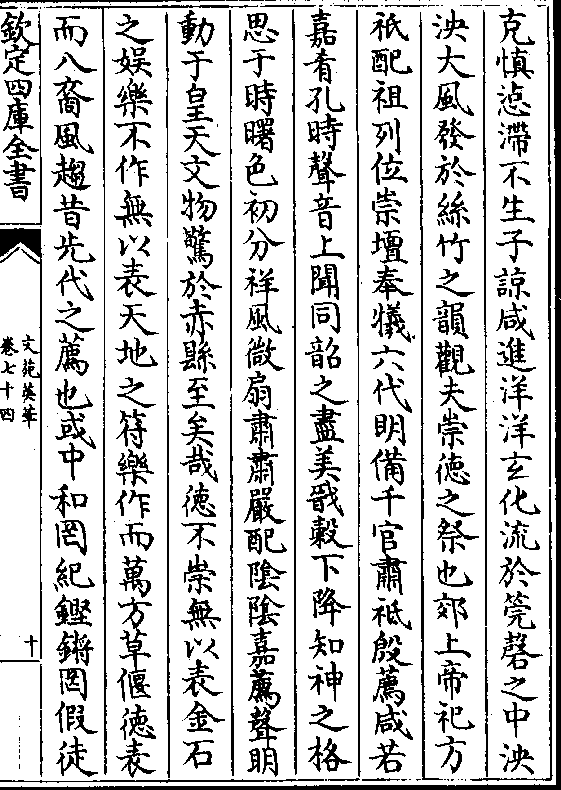 克慎惉滯不生子諒咸進洋洋玄化流於筦磬之中泱
泱大風發於絲竹之韻觀夫崇德之祭也郊上帝祀方
祇配祖列位崇壇奉犧六代明備千官肅祗殷薦咸若
嘉肴孔時聲音上聞同韶之盡美戩穀下降知神之格
思于時曙色初分祥風微扇肅肅嚴配隂隂嘉薦聲明
動于皇天文物驚於赤縣至矣哉徳不崇無以表金石
之娱樂不作無以表天地之符樂作而萬方草偃徳表
而八裔風趨昔先代之薦也或中和罔紀鏗鏘罔假徒
欽定四庫全書
文苑英華
卷七十四
十